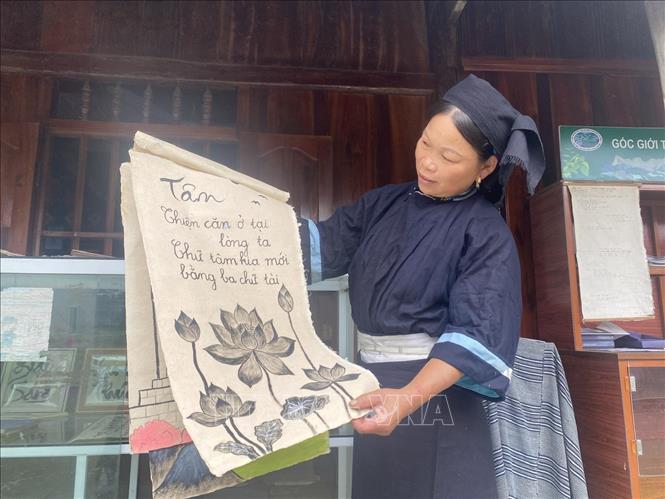 Tâm
Thiện căn ở tại
lòng ta
Chữ tâm kia mới
bằng ba chữ tài
GÓC GIỚI T
VNA